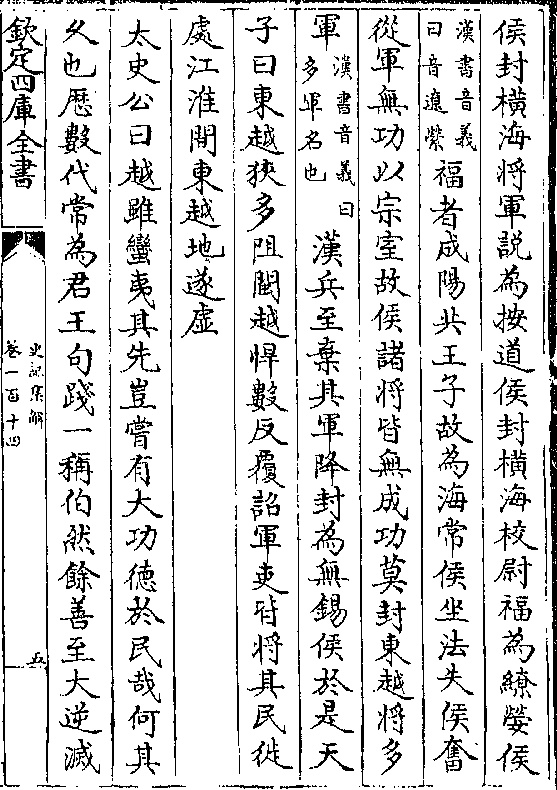 侯封横海将軍説為按道侯封横海校尉福為繚嫈侯
漢書音義
曰音遼縈
福者成陽共王子故為海常侯坐法失侯奮
從軍無功以宗室故侯諸将皆無成功莫封東越将多
軍
漢書音義曰
多軍名也
漢兵至棄其軍降封為無錫侯於是天
子曰東越狹多阻閩越悍數反覆詔軍吏皆将其民徙
處江淮間東越地遂虚
太史公曰越雖蠻夷其先豈嘗有大功德於民哉何其
乆也歴數代常為君王句踐一稱伯然餘善至大逆滅
欽定四庫全書
史記集解
卷一百十四
五